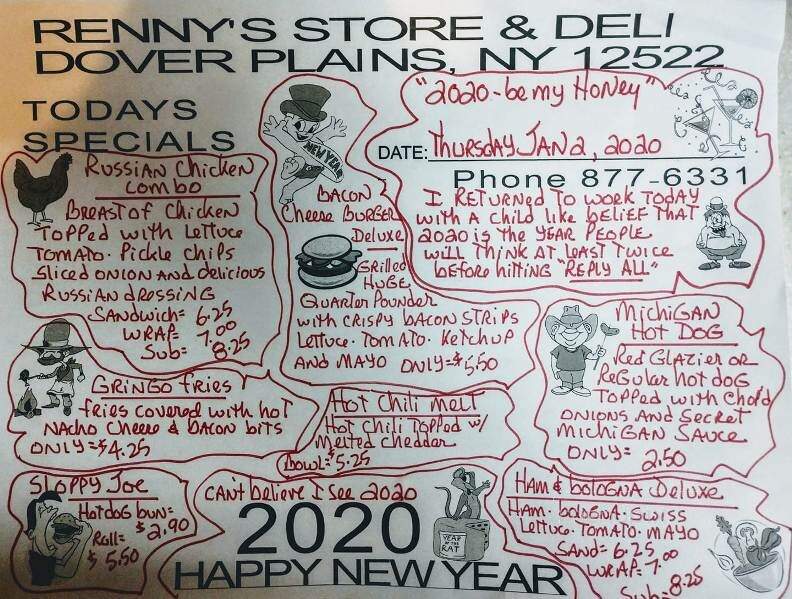 RENNY'S STORE & DELI
DOVER PLAINS, NY 12522
TODAYS
SPECIALS
"2020-be my Honey"
DATE: THURSDAY JAN 2, 2020
Phone 877-6331
I RETURNED TO WORK TODAY
WITH A CHILD LIKE BELIEF THAT
2020 IS THE YEAR PEOPLE
WILL THINK AT LEAST TWICE
BEFORE HITTING "REPLY ALL"
RUSSIAN CHICKEN
COMBO
BREAST OF CHICKEN
TOPPED WITH LETTUCE
TOMATO· PICKLE CHIPS
SLICED ONION AND DELICIOUS
RUSSIAN DRESSING
SANDWICH= 6.25
WRAP= 7.00
SUB= 8.25
NEW YEAR
BACON
CHEESE BURGER
DELUXE
GRILLED
HUGE
QUARTER POUNDER
WITH CRISPY BACON STRIPS
LETTUCE· TOMATO· KETCHUP
AND MAYO ONLY=$5.50
MICHIGAN
HOT DOG
RED GLAZIER OR
REGULAR HOT DOG
TOPPED WITH CHOP'D
ONIONS AND SECRET
MICHIGAN SAUCE
ONLY= 2.50
GRINGO FRIES
FRIES COVERED WITH HOT
NACHO CHEESE & BACON BITS
ONLY=$4.25
HOT CHILI MELT
HOT CHILI TOPPED W/
MELTED CHEDDAR
BOWL= 5.25
SLOPPY JOE
HOTDOG BUN=
$2.90
ROLL=
$5.50
CAN'T BELIEVE I SEE 2020
2020
YEAR
OF THE
RAT
HAPPY NEW YEAR
HAM & BOLOGNA DELUXE
HAM· BOLOGNA· SWISS
LETTUCE· TOMATO· MAYO
SAND= 6.25
WRAP= 7.00
SUB= 8.25